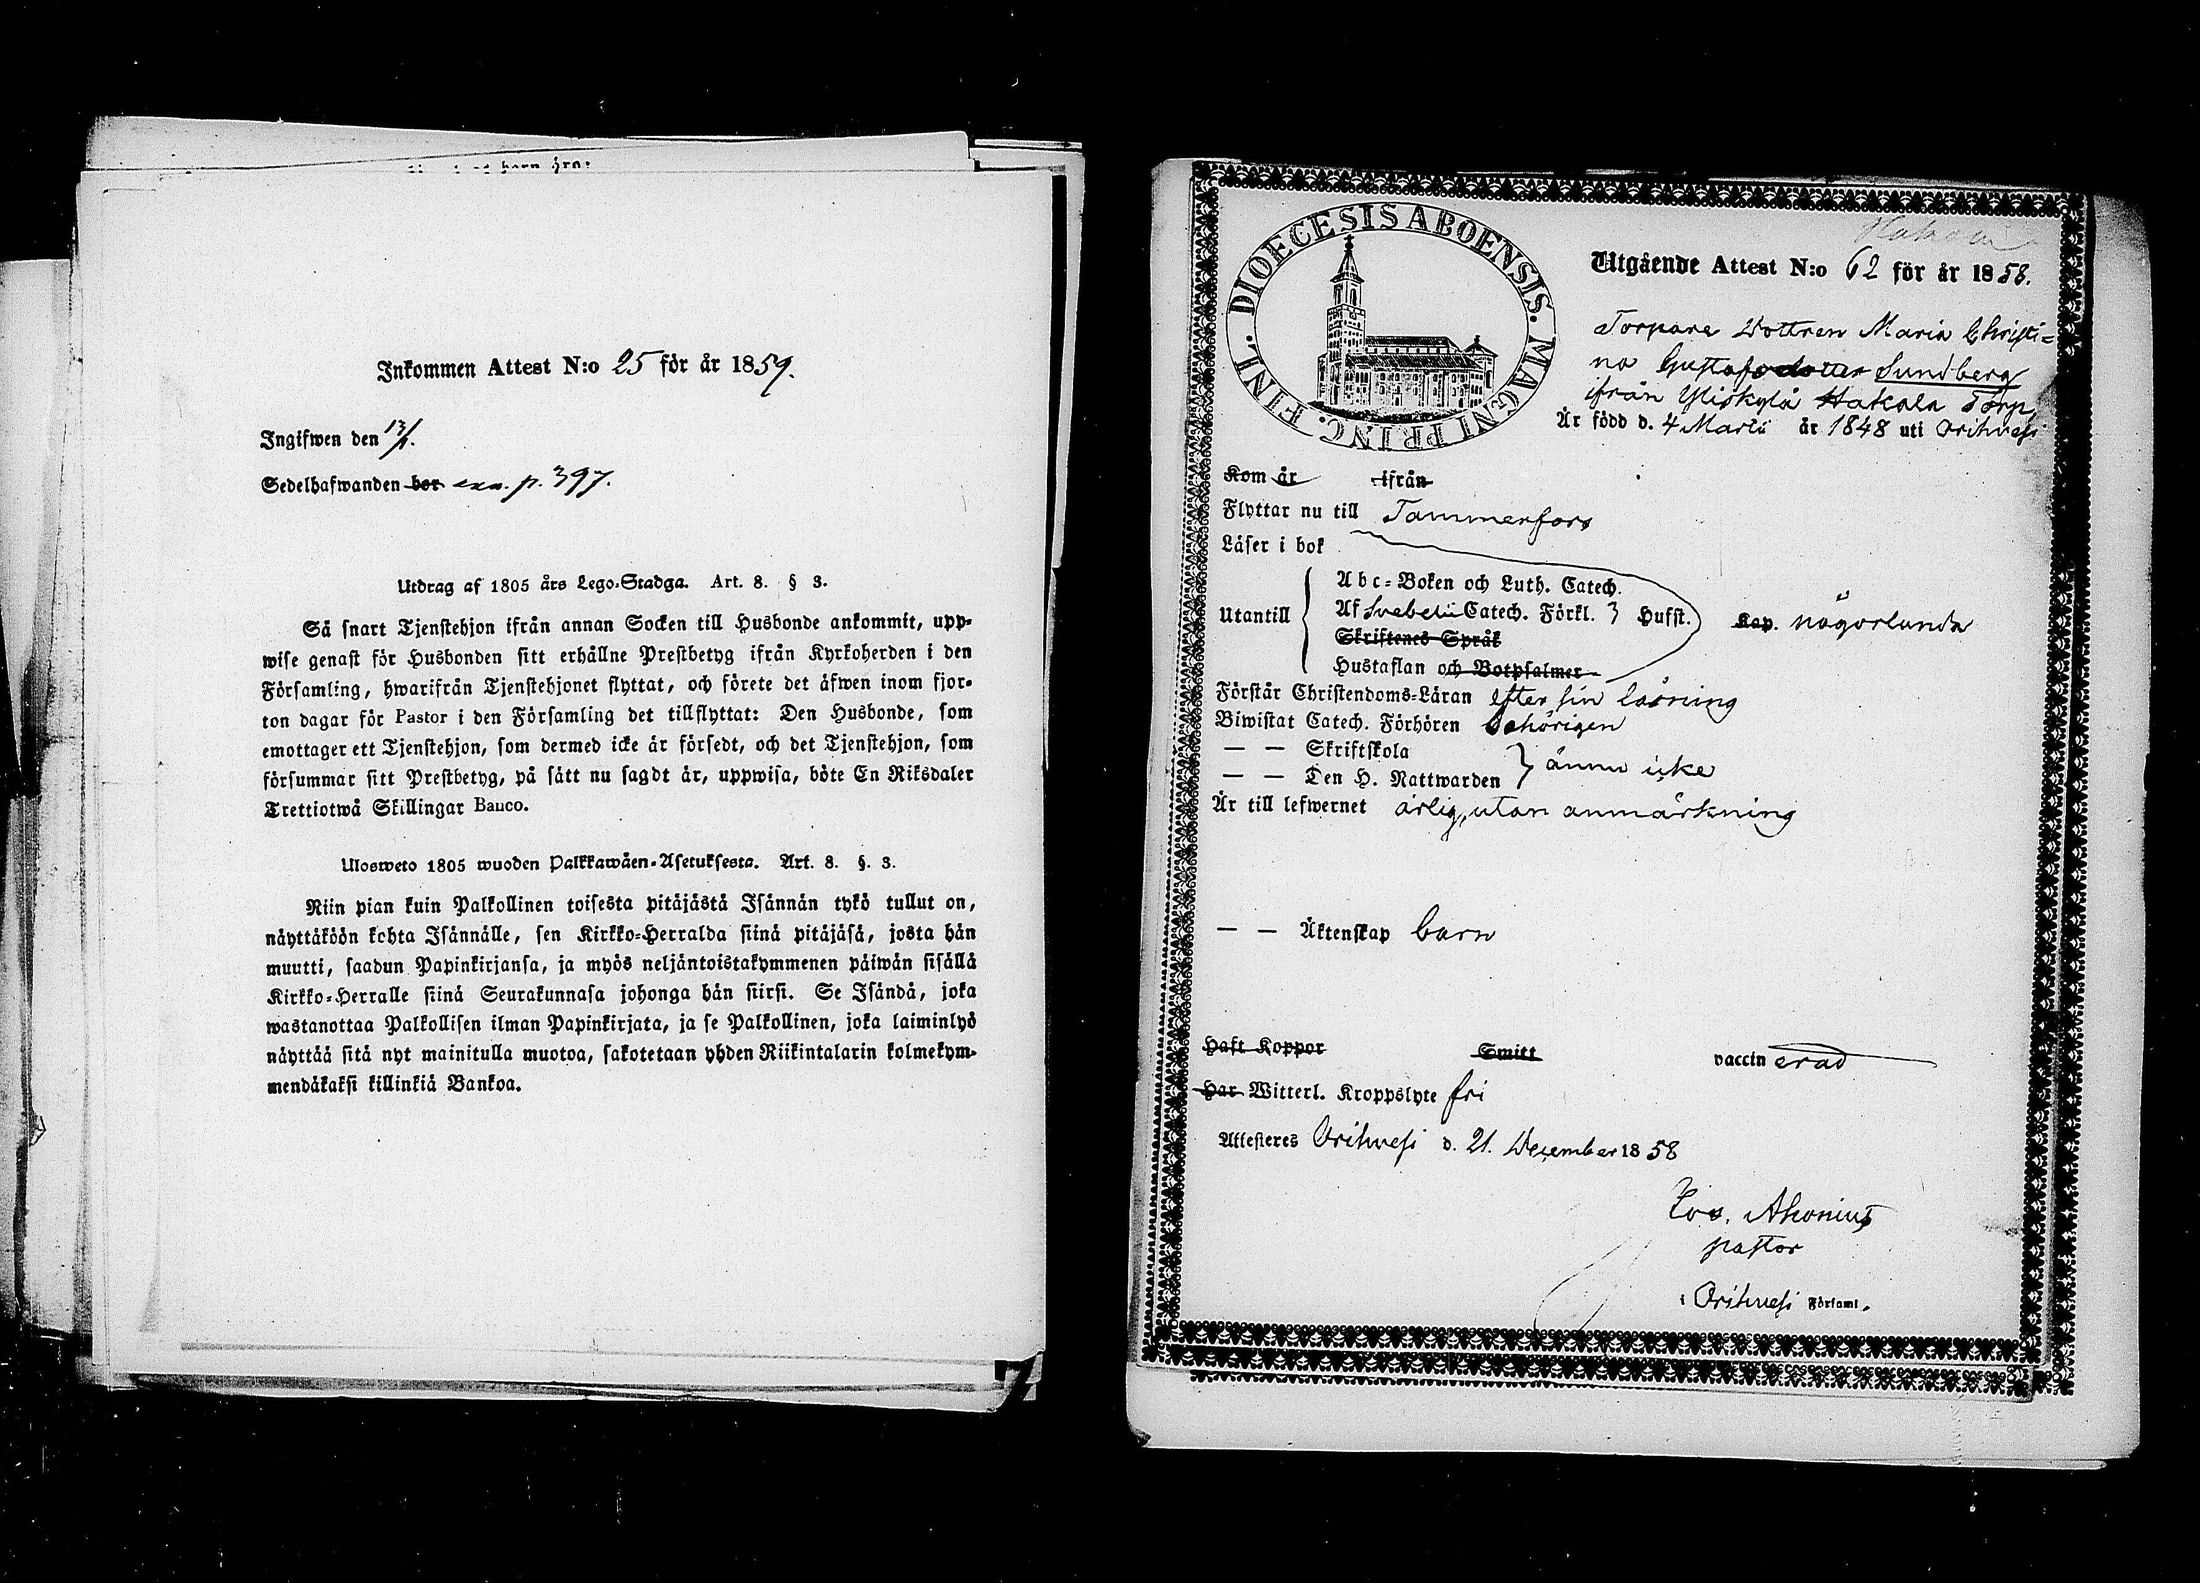 Inkommen Attest N:o 25 för år 1859.
Ingifwen den 13/1.
Sedelhafwanden bor exa. p. 397.
Utdrag af 1805 års Lego-Stadga. Art. 8. § 3.
Så snart Tjenstehjon ifrån annan Socken till Husbonde ankommit, upp-
wise genast för Husbonden sitt erhållne Prestbetyg ifrån Kyrkoherden i den
Församling, hwarifrån Tjenstehjonet flyttat, och förete det äfwen inom fjor-
ton dagar för Pastor i den Församling det tillflyttat: Den Husbonde, som
emottager ett Tjenstehjon, som dermed icke är försedt, och det Tjenstehjon, som
försummar sitt Prestbetyg, på sätt nu sagdt är, uppwisa, böte En Riksdaler
Trettiotwå Skillingar Banco.
Ulosweto 1805 wuoden Palkkawäen-Asetuksesta. Art. 8. §. 3.
Niin pian kuin Palkollinen toisesta pitäjästä Isännän tykö tullut on,
näyttäköön kohta Isännälle, sen Kirkko-Herralda siinä pitäjäsä, josta hän
muutti, saadun Papinkirjansa, ja myös neljäntoistakymmenen päiwän sisällä
Kirkko-Herralle siinä Seurakunnasa johonga hän siirsi. Se Isändä, joka
wastanottaa Palkollisen ilman Papinkirjata, ja se Palkollinen, joka laiminlyö
näyttää sitä nyt mainitulla muotoa, sakotetaan yhden Riikintalarin kolmekym-
mendäkaksi killinkiä Bankoa.
DIOECESIS ABOENSIS. MAGNI PRINC. FINL.
Utgående Attest N:o 62 för år 1858.
Torpare Dottren Maria Christi=
na Gustafsdotter Sundberg
ifrån Yliskylä Hakala Torp,
Är född d. 4 Martii år 1848 uti Orihvesi
Kom år ifrån
Flyttar nu till Tammerfors
Läser i bok
Utantill
Abc-Boken och Luth. Catech.
Af Svebelii Catech. Förkl. 3 Hufst. Kap. någorlunda
Skriftenes Språk
Hustaflan och Botpsalmer
Förstår Christendoms-Läran efter sin läsning
Biwistat Catech. Förhören behörigen
— — Skriftskola
— — Den H. Nattwarden } ännu icke
Är till lefwernet ärlig, utan anmärkning
— — Äktenskap barn
Haft Koppor Smitt vaccinerad
Har Witterl. Kroppslyte fri
Attesteres Orihvesi d. 21. December 1858
Jos. Ahonius
pastor
i Orihvesi Församl.